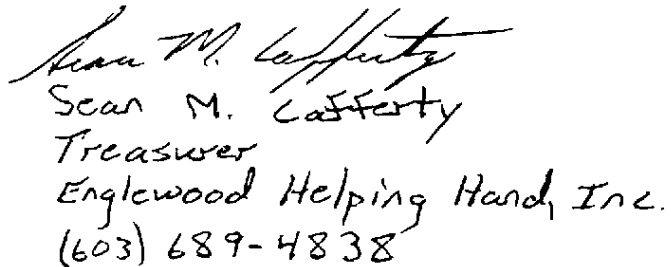 Sean M. Cafferty
Sean M. Cafferty
Treasurer
Englewood Helping Hand, Inc.
(603) 689-4838